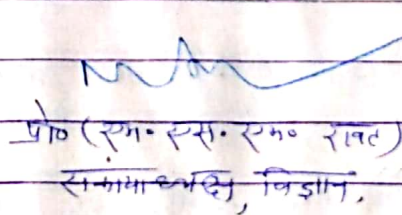 प्रो० (एम. एस. एम० रावत)
संकायाध्यक्ष, विज्ञान.